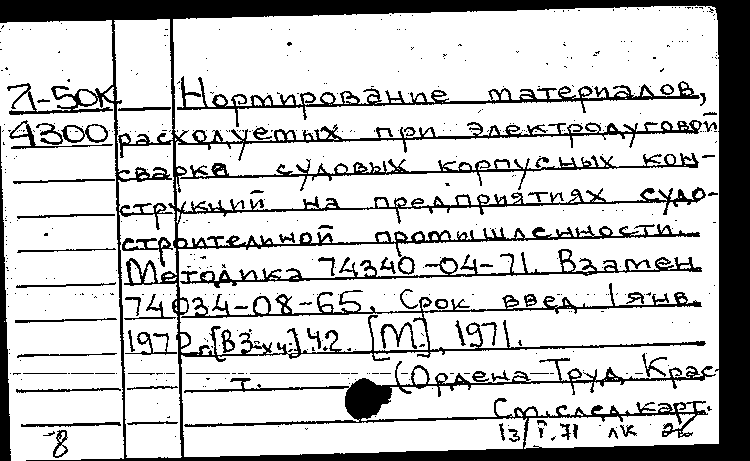 Л-50К Нормирование материалов,
4300 расходуемых при электродуговой
сварке судовых корпусных кон-
струкций на предприятиях судо-
строительной промышленности.
Методика 74340-04-71. Взамен
74034-08-65. Срок введ. 1 янв.
1972 г. [В 3-х ч.]. Ч. 2. [М.], 1971.
т. (Ордена Труд. Крас
См. след. карт.
8 13/I.71 лк